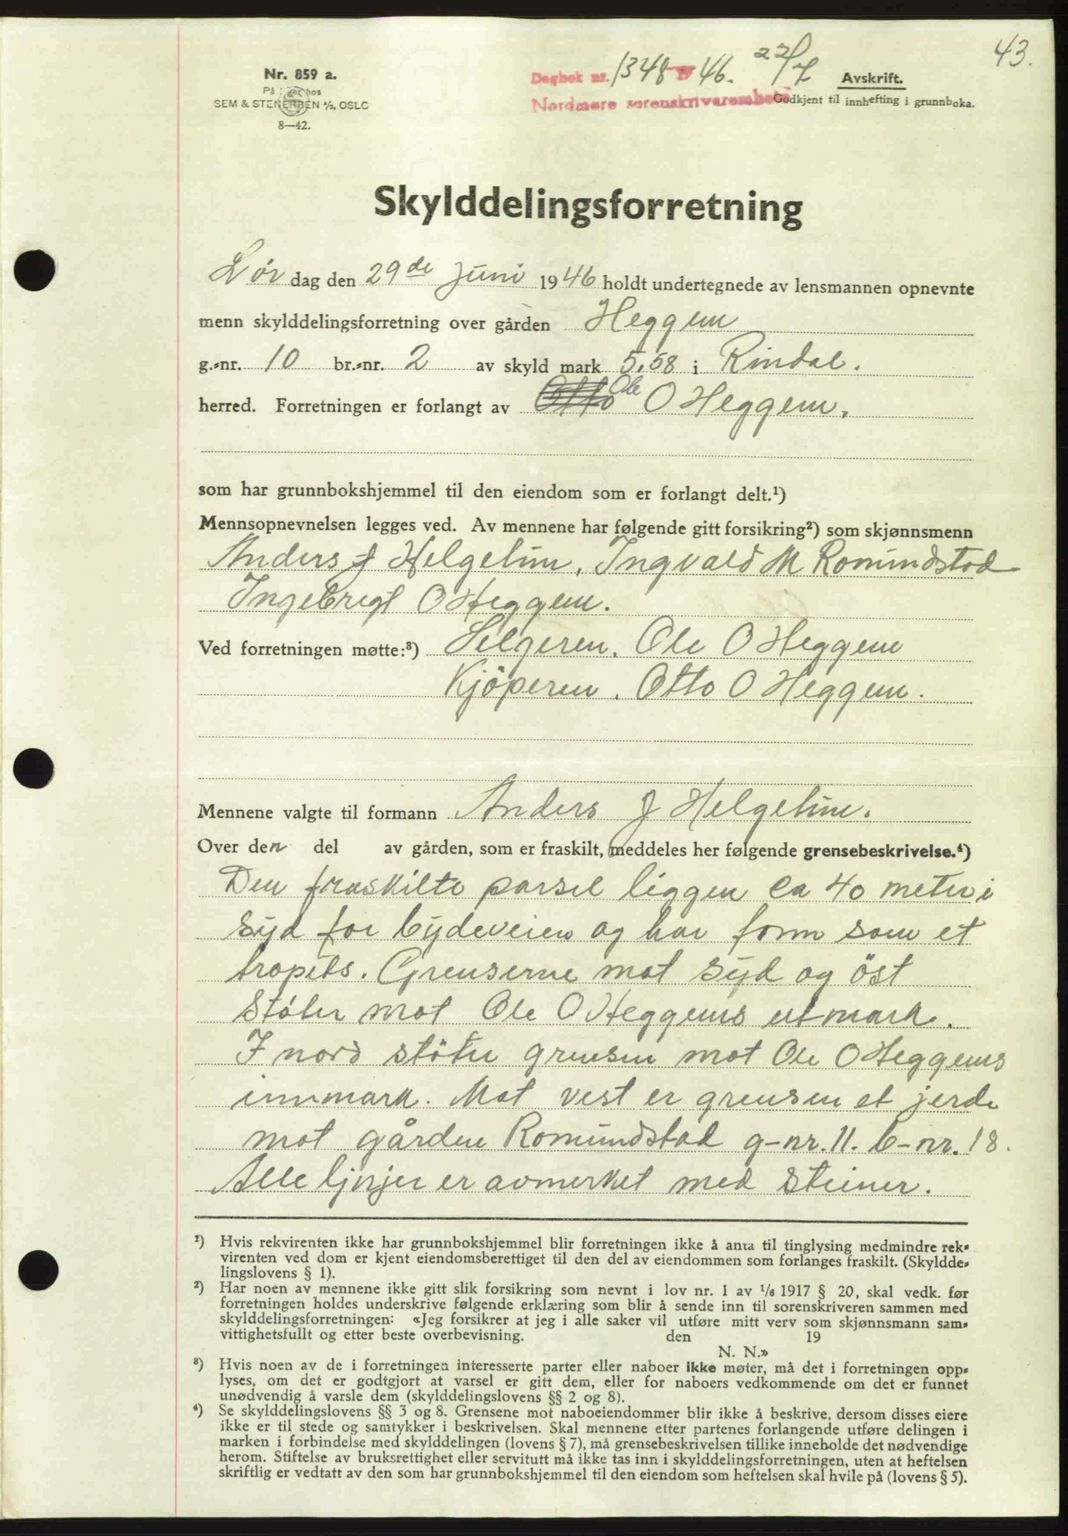 43.
Nr. 859 a.
SEM & STENERSEN A/S, OSLO
8—42.
Dagbok nr. 1348 46. 22/7
Nordmøre sorenskriverembete
Avskrift.
Godkjent til innhefting i grunnboka.
Skylddelingsforretning
Lør dag den 29de juni 1946 holdt undertegnede av lensmannen opnevnte
menn skylddelingsforretning over gården Heggem
g.-nr. 10 br.-nr. 2 av skyld mark 5,58 i Rindal.
herred. Forretningen er forlangt av Otto Ole O Heggem.
som har grunnbokshjemmel til den eiendom som er forlangt delt.¹)
Mennsopnevnelsen legges ved. Av mennene har følgende gitt forsikring²) som skjønnsmenn
Anders J Helgetun, Ingvald M Romundstad
Ingebrigt O Heggem.
Ved forretningen møtte:³) Selgeren. Ole O Heggem
Kjöperen. Otto O Heggem.
Mennene valgte til formann Anders J Helgetun.
Over den del av gården, som er fraskilt, meddeles her følgende grensebeskrivelse.⁴)
Den fraskilte parsel ligger ca 40 meter i
syd for bydeveien og har form som et
trapets. Grenserne mot syd og öst
støter mot Ole O Heggems utmark.
I nord stöter grensen mot Ole O Heggems
innmark. Mot vest er grensen et jerde
mot gården Romundstad g-nr. 11. b-nr. 18.
Alle linjer er avmerket med steiner.
¹) Hvis rekvirenten ikke har grunnbokshjemmel blir forretningen ikke å anta til tinglysing medmindre rek-
virenten ved dom er kjent eiendomsberettiget til den del av eiendommen som forlanges fraskilt. (Skyldde-
lingslovens § 1).
²) Har noen av mennene ikke gitt slik forsikring som nevnt i lov nr. 1 av 1/6 1917 § 20, skal vedk. før
forretningen holdes underskrive følgende erklæring som blir å sende inn til sorenskriveren sammen med
skylddelingsforretningen: «Jeg forsikrer at jeg i alle saker vil utføre mitt verv som skjønnsmann sam-
vittighetsfullt og etter beste overbevisning. den 19
N. N.»
³) Hvis noen av de i forretningen interesserte parter eller naboer ikke møter, må det i forretningen opp-
lyses, om det er godtgjort at varsel er gitt dem, eller for naboers vedkommende om det er funnet
unødvendig å varsle dem (skylddelingslovens §§ 2 og 8).
⁴) Se skylddelingslovens §§ 3 og 8. Grensene mot naboeiendommer blir ikke å beskrive, dersom disses eiere
ikke er til stede og samtykker i beskrivelsen. Skal mennene etter partenes forlangende utføre delingen i
marken i forbindelse med skylddelingen (lovens § 7), må grensebeskrivelsen tillike inneholde det nødvendige
herom. Stiftelse av bruksrettighet eller servitutt må ikke tas inn i skylddelingsforretningen, uten at heftelsen
skriftlig er vedtatt av den som har grunnbokshjemmel til den eiendom som heftelsen skal hvile på (lovens § 5).